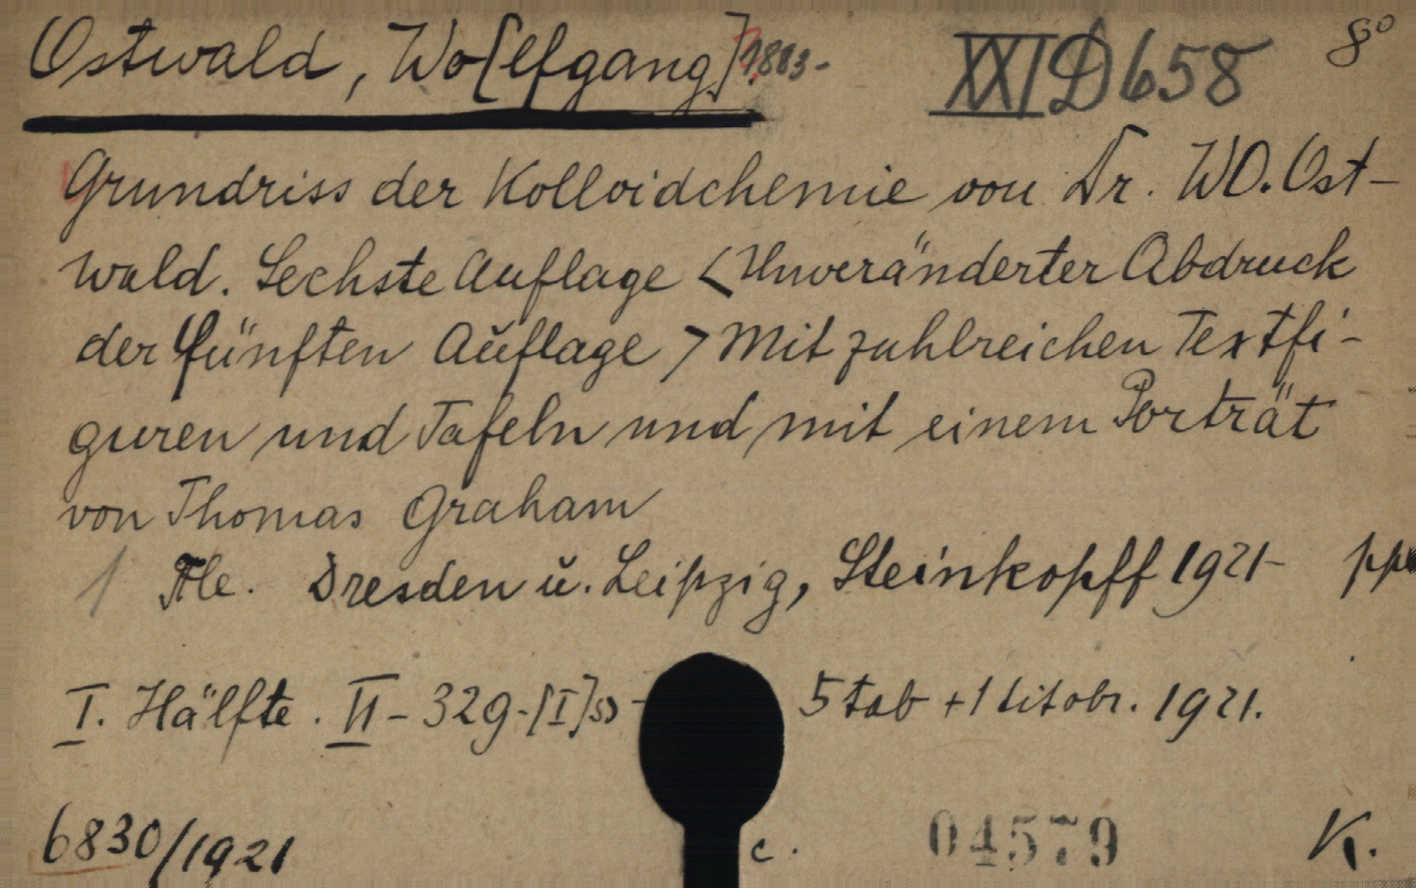 Ostwald, Wo[lfgang] 1883- XXI D 658 8°
Grundriss der Kolloidchemie von Dr. WO. Ost-
wald. Sechste Auflage <Unveränderter Abdruck
der fünften Auflage> Mit zahlreichen Textfi-
guren und Tafeln und mit einem Porträt
von Thomas Graham
1 Tle. Dresden u. Leipzig, Steinkopff 1921-
I. Hälfte. II - 329 - [I] s) 5 tab + 1 titobr. 1921.
6830/1921 c. 04579 K.